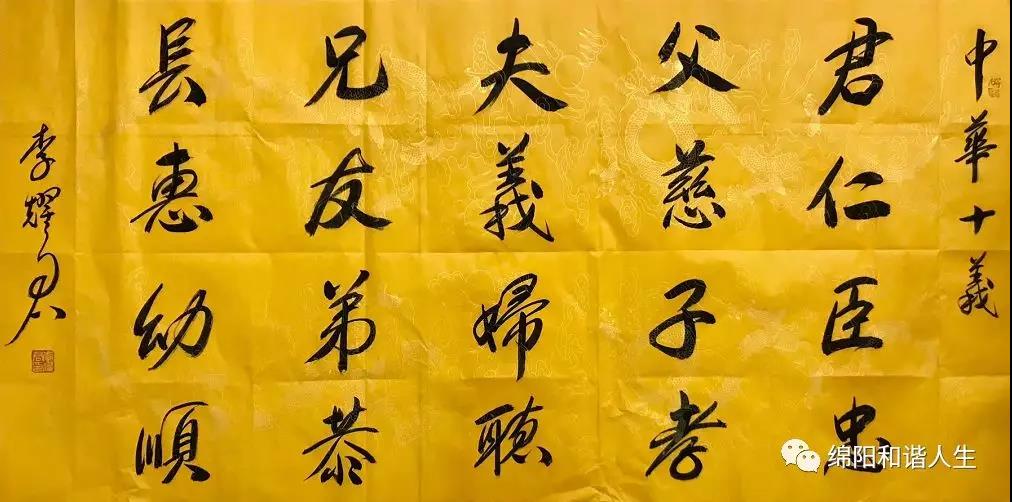 中華十義
君仁臣忠
父慈子孝
夫義婦聴
兄友弟恭
長惠幼順
李耀君
绵阳和谐人生